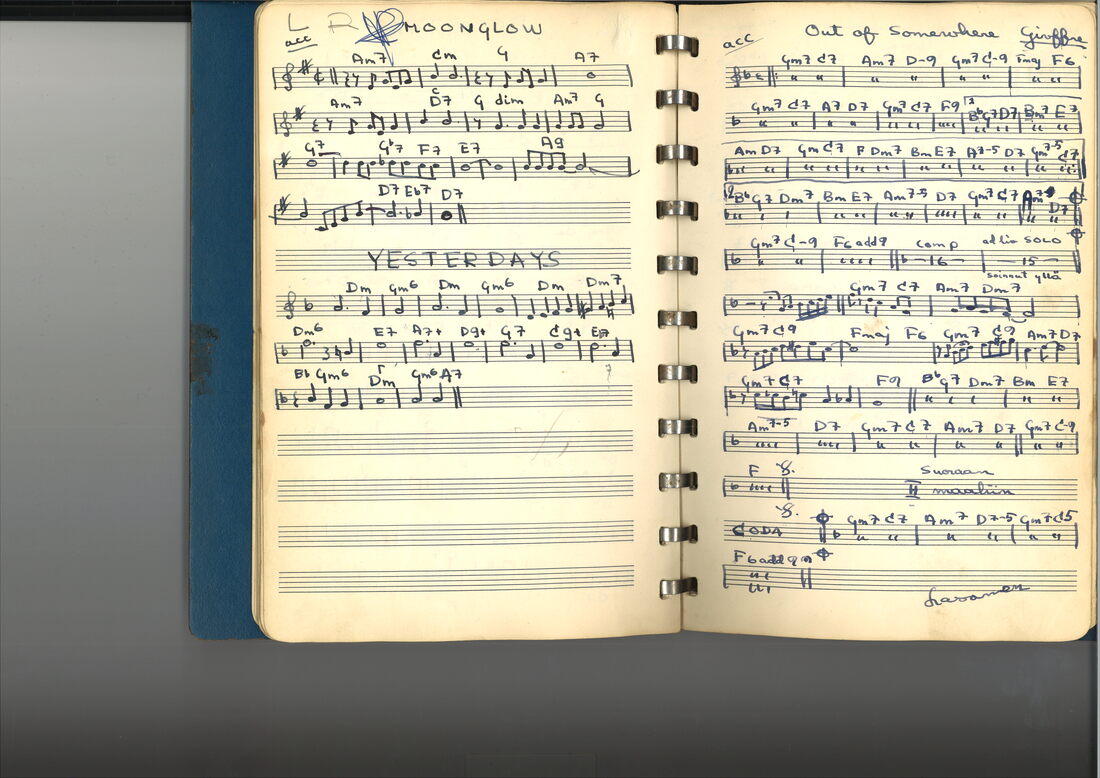 L R MOONGLOW
acc
Am7 Cm G A7
Am7 D7 G dim Am7 G
G7 Gb7 F7 E7 A9
D7 Eb7 D7
YESTERDAYS
Dm Gm6 Dm Gm6 Dm Dm7
Dm6 E7 A7+ D9+ G7 C9+ E7
7
Bb Gm6 Dm Gm6 A7
acc Out of Somewhere Giuffre
Gm7 C7 Am7 D-9 Gm7 C-9 Fmaj F6
Gm7 C7 A7 D7 Gm7 C7 F9 Bb G7 D7 Bm7 E7
Am D7 Gm C7 F Dm7 Bm E7 A7-5 D7 Gm7-5 C7
Bb G7 Dm7 Bm E7 Am7-5 D7 Gm7 C7 Am7 D7
Gm7 C-9 F6 add9 comp ad lib SOLO
16 15
soinnut yllä
Gm7 C7 Am7 Dm7
Gm7 C9 Fmaj F6 Gm7 C9 Am7 D7
Gm7 C7 F9 Bb G7 Dm7 Bm E7
Am7-5 D7 Gm7 C7 Am7 D7 Gm7 C-9
F Suoraan
II maaliin
CODA Gm7 C7 Am7 D7-5 Gm7 C5
F6 add9